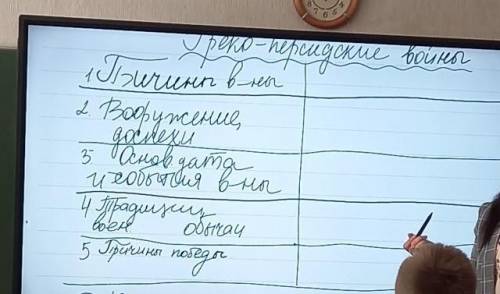 Греко-персидские войны
1. Причины в-ны
2. Вооружение,
доспехи
3. Основ дата
и события в-ны
4 Традиции,
воен обычаи
5 Причины победы